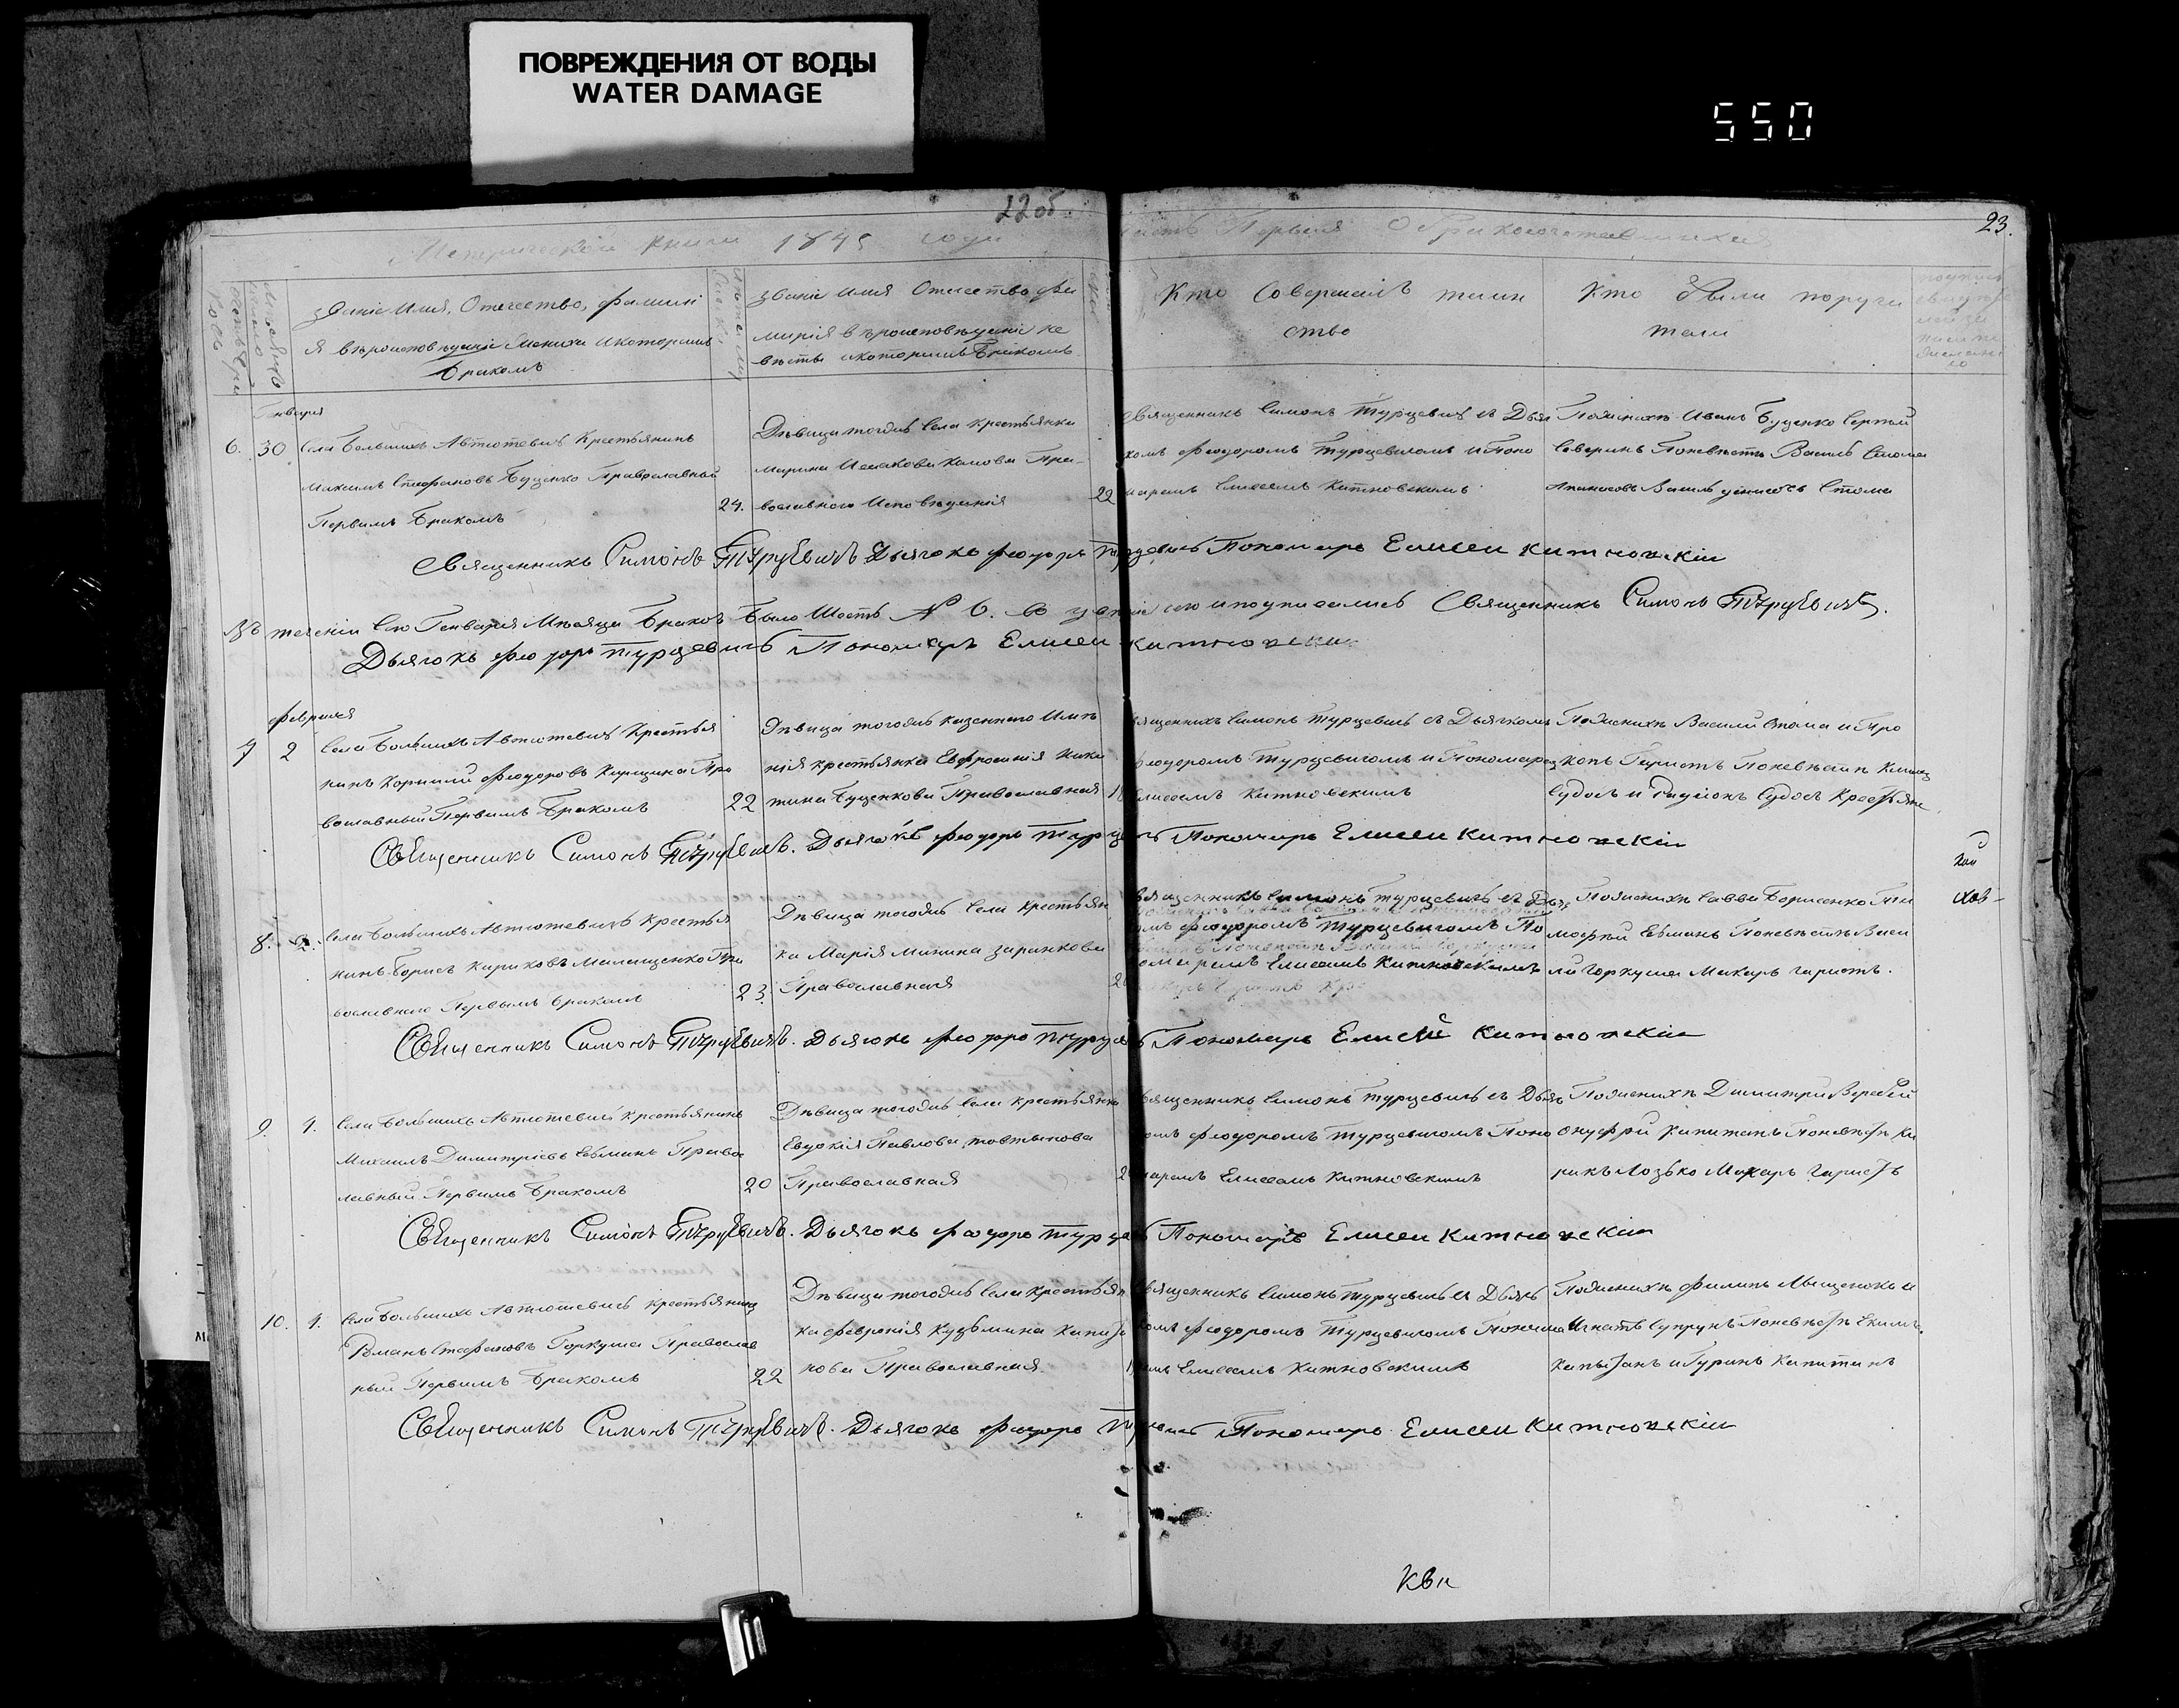 ПОВРЕЖДЕНИЯ ОТ ВОДЫ
WATER DAMAGE
550
22 об
23.
Метрической книги 1845 года
Часть Первая О бракосочетавшихся
Званіе Имя, Отечество, фамилі
я вѣроисповѣданіе Жениха и которымъ
бракомъ
Званіе Имя Отечество фа
милія вѣроисповѣданіе не
вѣсты и которымъ бракомъ
Кто Совершалъ таин
ство
Кто были поручи
тели
Генваря
6. 30
Села Большихъ Автютевичъ Крестьянинъ
Максимъ Стефановъ Буценко Православный
Первымъ Бракомъ
24.
Дѣвица тогожъ Села крестьянка
Марина Исаакова Пра-
вославного Исповѣданія
22
Священникъ Симонъ Турцевичъ съ Дья
комъ Феодоромъ Турцевичомъ и Поно
маремъ Елисеемъ Китновскимъ
Поженихѣ Иванъ Буценко Сергей
Северинъ Поневѣсте Василь Стома
Священникъ Симонъ Турцевичъ Дьячокъ Феодоръ Турцевичъ Пономарь Елисей Китновскій
Въ теченіи Сего Генваря Мѣсяца Браковъ было Шесть № 6. Священникъ Симонъ Турцевичъ.
Дьячокъ Феодоръ Турцевичъ Пономарь Елисей Китновскій
февраля
7 2
Села Большихъ Автютевичъ Крестья
нинъ Корнилій Феодоровъ Пра
вославный Первымъ Бракомъ
22
Дѣвица тогожъ казенного Имѣ
нія крестьянка Евфросинія Ники
тина Буценкова Православная
Священникъ Симонъ Турцевичъ съ Дьячкомъ
Феодоромъ Турцевичомъ и Пономаремъ
Елисеемъ Китновскимъ
Поженихѣ Василій Стома и Про
копъ Гаристъ Поневѣсте
Судосъ и Судосъ Крестьяне
Священникъ Симонъ Турцевичъ. Дьячокъ Феодоръ Турцевичъ Пономарь Елисей Китновскій
8. 2.
Села Большихъ Автютевичъ Крестья
нинъ Борисъ Кириковъ Малащенко Пра
вославного Первымъ Бракомъ
23.
Дѣвица тогожъ Села Крестьян
ка Марія Минина Заранкова
Православная
Священникъ Симонъ Турцевичъ съ Дьяч
комъ Феодоромъ Турцевичомъ По
номаремъ Елисеемъ Китновскимъ
Поженихѣ Савва Борисенко Ти
мофей Евминъ Поневѣсте Васи
лій Горкуша Макаръ Гаристъ.
Священникъ Симонъ Турцевичъ. Дьячокъ Феодоръ Турцевичъ Пономарь Елисей Китновскій
9. 4.
Села Большихъ Автютевичъ крестьянинъ
Михаилъ Димитріевъ Евминъ Правос
лавный Первымъ Бракомъ
20
Дѣвица тогожъ Села крестьянка
Евдокія Павлова
Православная
Священникъ Симонъ Турцевичъ съ Дьяч
комъ Феодоромъ Турцевичомъ Поно
маремъ Елисеемъ Китновскимъ
Поженихѣ Димитрій Веребей
Онуфрій Капитанъ Поневѣсте Ки
рикъ Лозько Макаръ Гаристъ
Священникъ Симонъ Турцевичъ. Дьячокъ Феодоръ Турцевичъ Пономарь Елисей Китновскій
10. 4.
Села Большихъ Автютевичъ крестьянинъ
Романъ Стефановъ Горкуша Православ
ный Первымъ Бракомъ
22
Дѣвица тогожъ Села Крестьян
ка Февронія Кузьмина Капита
нова Православная
Священникъ Симонъ Турцевичъ съ Дьяч
комъ Феодоромъ Турцевичомъ Понома
ремъ Елисеемъ Китновскимъ
Поженихѣ Филипъ Мищенокъ и
Игнатъ Супрунъ Поневѣсте Екимъ
Капытанъ и Гуринъ Капитанъ
Священникъ Симонъ Турцевичъ. Дьячокъ Феодоръ Турцевичъ Пономарь Елисей Китновскій